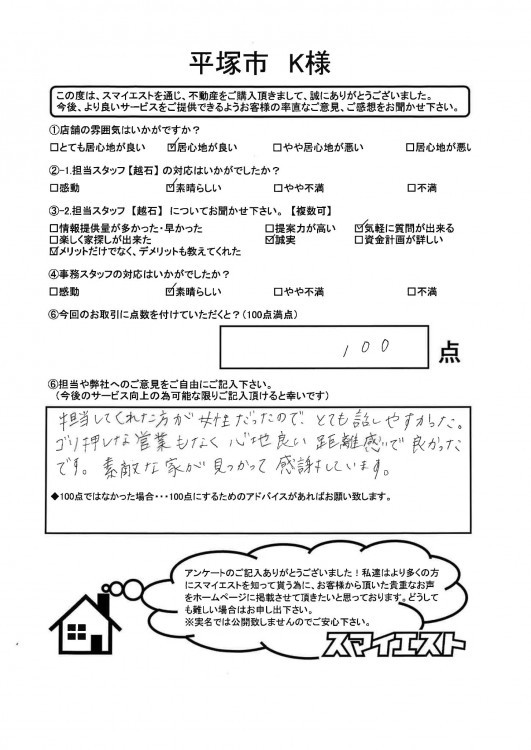 平塚市 K様
この度は、スマイエストを通じ、不動産をご購入頂きまして、誠にありがとうございました。
今後、より良いサービスをご提供できるようお客様の率直なご意見、ご感想をお聞かせ下さい。
①店舗の雰囲気はいかがですか？
□とても居心地が良い ☑居心地が良い □やや居心地が悪い □居心地が悪い
②-1.担当スタッフ【越石】の対応はいかがでしたか？
□感動 ☑素晴らしい □やや不満 □不満
③-2.担当スタッフ【越石】 についてお聞かせ下さい。【複数可】
□情報提供量が多かった・早かった □提案力が高い ☑気軽に質問が出来る
□楽しく家探しが出来た ☑誠実 □資金計画が詳しい
☑メリットだけでなく、デメリットも教えてくれた
④事務スタッフの対応はいかがでしたか？
□感動 ☑素晴らしい □やや不満 □不満
⑥今回のお取引に点数を付けていただくと？（100点満点）
100 点
⑥担当や弊社へのご意見をご自由にご記入下さい。
（今後のサービス向上の為可能な限りご記入頂けると幸いです）
担当してくれた方が女性だったので、とても話しやすかった。
ゴリ押しな営業もなく心地良い距離感で良かった
です。素敵な家が見つかって感謝しています。
◆100点ではなかった場合・・・100点にするためのアドバイスがあればお願い致します。
アンケートのご記入ありがとうございました！私達はより多くの方
にスマイエストを知って貰う為に、お客様から頂いた貴重なお声
をホームページに掲載させて頂きたいと思っております。どうして
も難しい場合はお申し出下さい。
※実名では公開致しませんのでご安心下さい。
スマイエスト